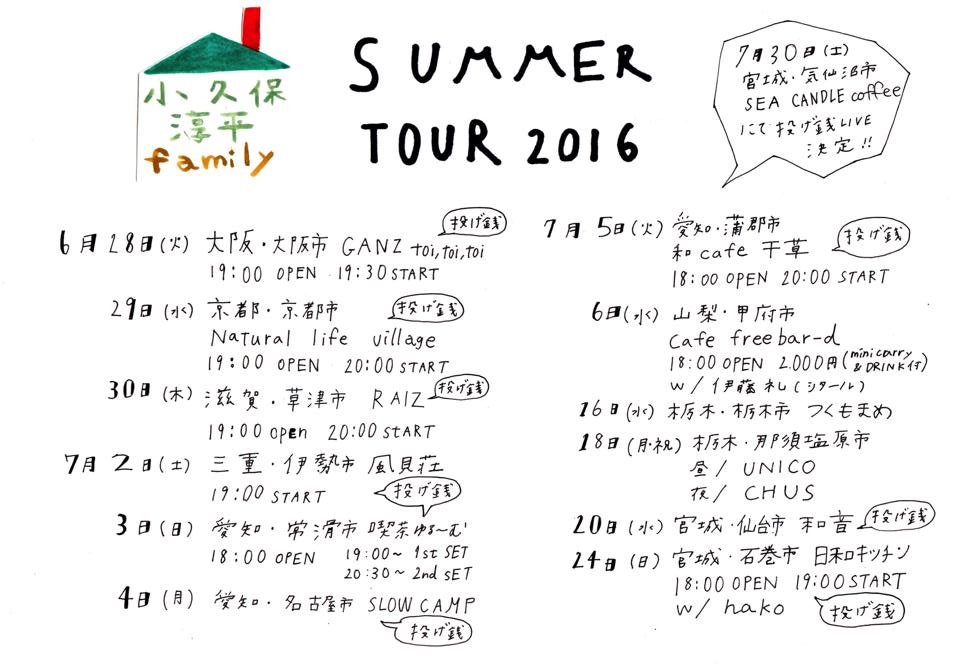 小久保
淳平
family
SUMMER
TOUR 2016
7月30日(土)
宮城・気仙沼市
SEA CANDLE coffee
にて投げ銭LIVE
決定!!
6月28日(火) 大阪・大阪市 GANZ toi,toi,toi 投げ銭
19:00 OPEN 19:30 START
29日(水) 京都・京都市 投げ銭
Natural life village
19:00 OPEN 20:00 START
30日(木) 滋賀・草津市 RAIZ 投げ銭
19:00 open 20:00 START
7月2日(土) 三重・伊勢市 風見荘
19:00 START 投げ銭
3日(日) 愛知・常滑市 喫茶ゆる〜む
18:00 OPEN 19:00〜 1st SET
20:30〜 2nd SET
4日(月) 愛知・名古屋市 SLOW CAMP
投げ銭
7月5日(火) 愛知・蒲郡市
和cafe 千草 投げ銭
18:00 OPEN 20:00 START
6日(水) 山梨・甲府市
Cafe freebar-d
18:00 OPEN 2.000円(mini carry & DRINK付)
w/ 伊藤礼(シタール)
16日(水) 栃木・栃木市 つくもまめ
18日(月・祝) 栃木・那須塩原市
昼/ UNICO
夜/ CHUS
20日(水) 宮城・仙台市 和音 投げ銭
24日(日) 宮城・石巻市 日和キッチン
18:00 OPEN 19:00 START
w/ hako 投げ銭